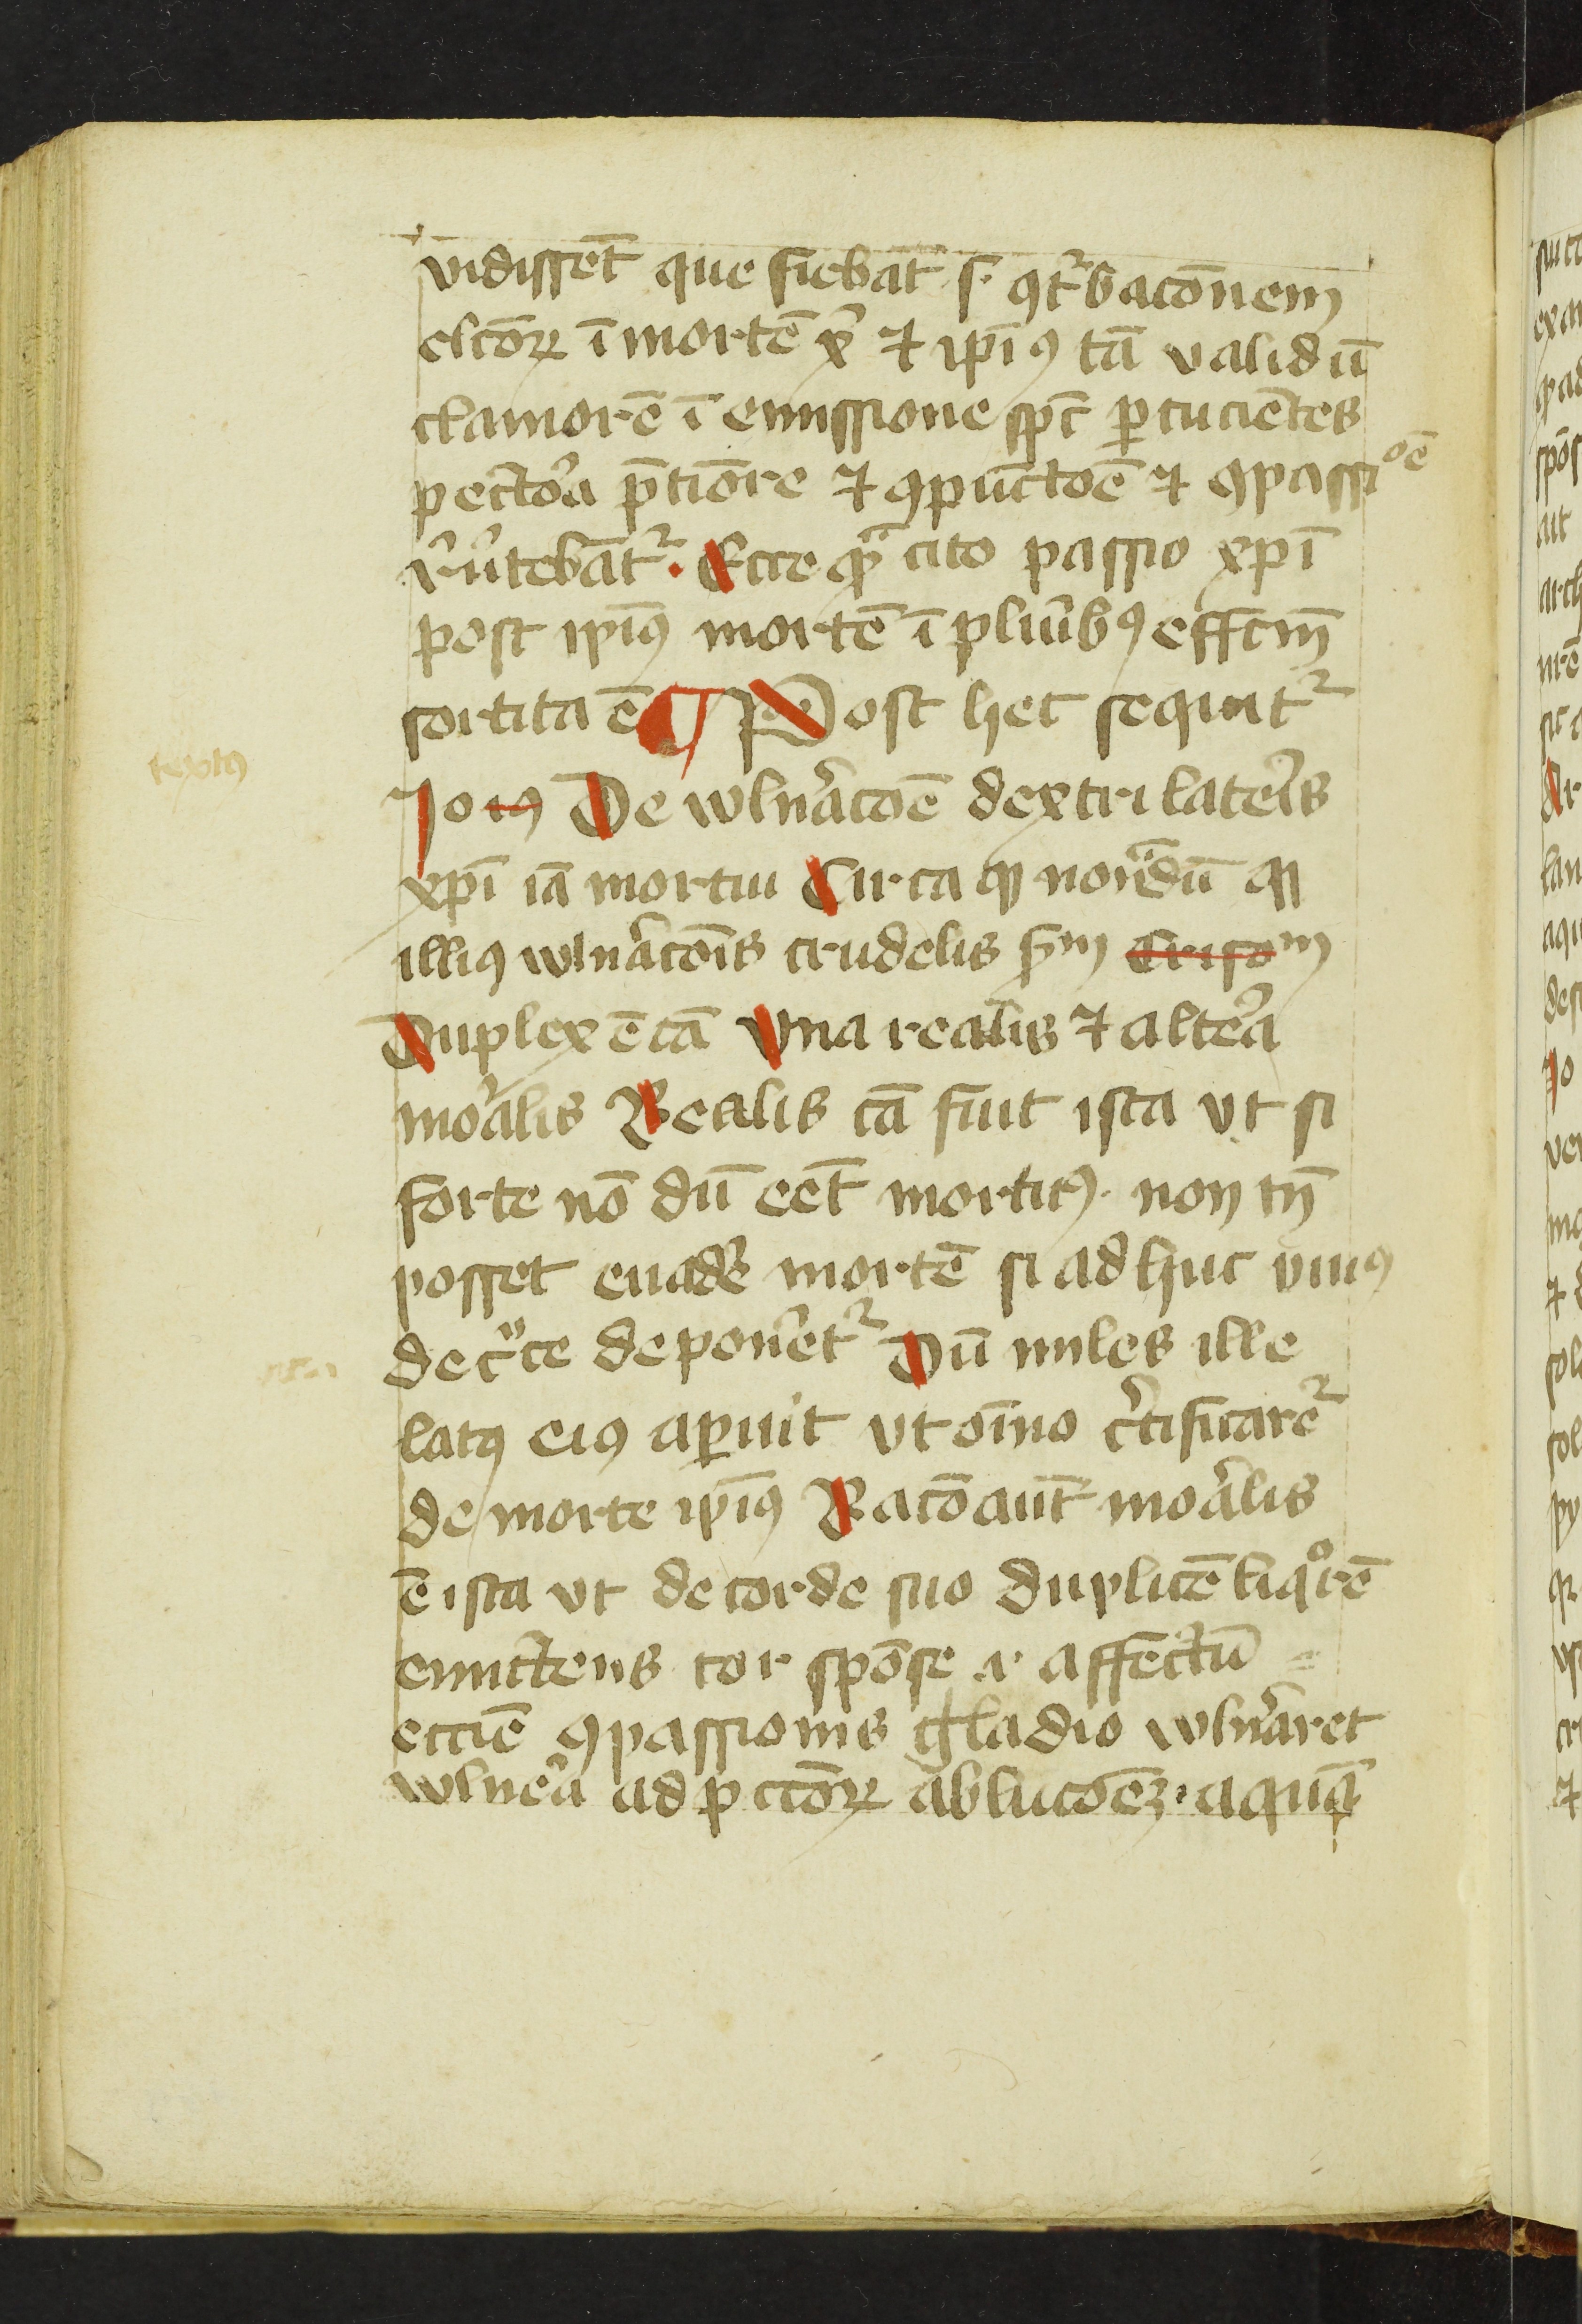 vidissēt que fiebāt .s. ꝯt᷑bacōnem
elcōꝝ ī mortē xͥ ⁊ ip̄iꝰ tā validū
clamorē ī emissione sp̄c ꝑcucientes
pectora p̄tiōre ⁊ ꝯpūctōe ⁊ ꝯpassiōe
rūtebāt᷑. Ecce qᷓ cito passio xp̄i
post ip̄iꝰ mortē ī pluribꝰ effcm̄
sortita ē ¶ Post hec sequit᷑
textꝰ
Jo 19 De wlnʼacōe dextri lateris
xp̄i iā mortui Circa qͥ notādū ꝙ
illiꝰ wlnʼacōis crudelis sm̄ Crisom
Duplex ē cā Una realis ⁊ altera
moralis Realis cā fuit ista vt si
forte nō dū eēt mortuꝰ. non tn̄
posset euadē mortē si adhuc viuꝰ
de cͣce deponēt᷑ Dū miles ille
latꝰ eiꝰ aꝑuit vt oīno cʼtificarēt᷑
de morte ip̄iꝰ Racō aūt moralis
ē ista vt de corde suo duplicē liqͦrē
emictens cor spōse .i. affectū =
eccīe ꝯpassionis gladio wlnʼaret
wlnera ad pccōꝝ ablucōeꝫ. aquā